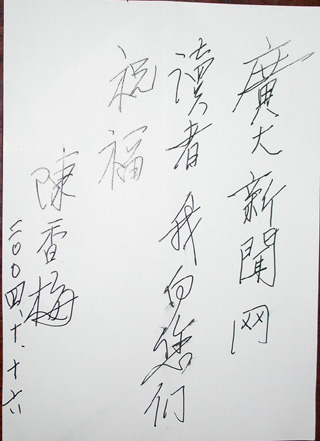 廣大新聞网
讀者我向您们
祝福
陳香梅
二00四、十、十六